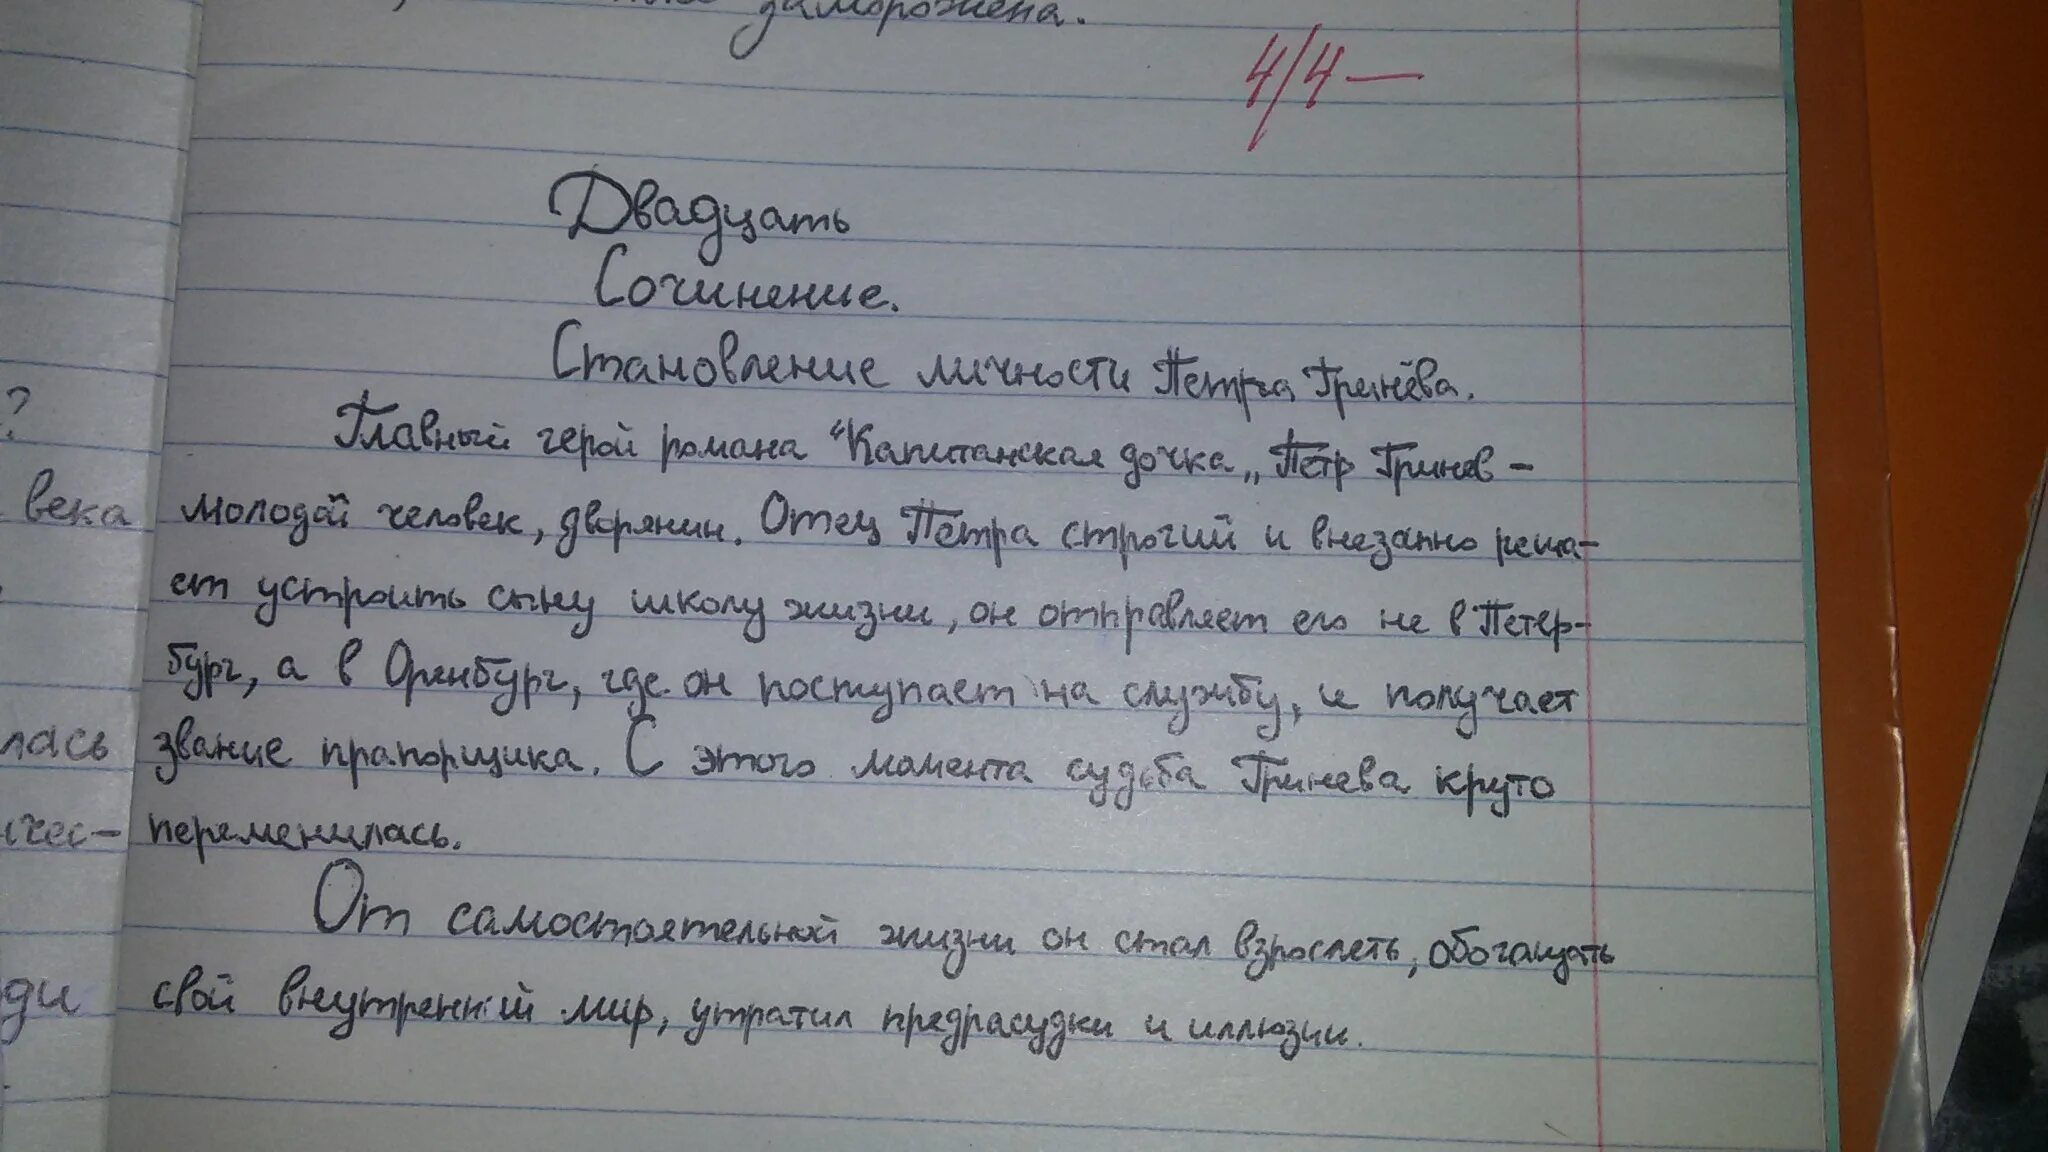 заморожена.
4/4—
Двадцать
Сочинение.
Становление личности Петра Гринёва.
?
Главный герой романа "Капитанская дочка„ Пётр Гринёв –
века
молодой человек, дворянин. Отец Петра строгий и внезапно реша-
ет устроить сыну школу жизни, он отправляет его не в Петер-
бург, а в Оренбург, где он поступает на службу, и получает
лась
звание прапорщика. С этого момента судьба Гринева круто
чес-
переменилась.
От самостоятельной жизни он стал взрослеть, обогащать
ди
свой внутренний мир, утратил предрассудки и иллюзии.